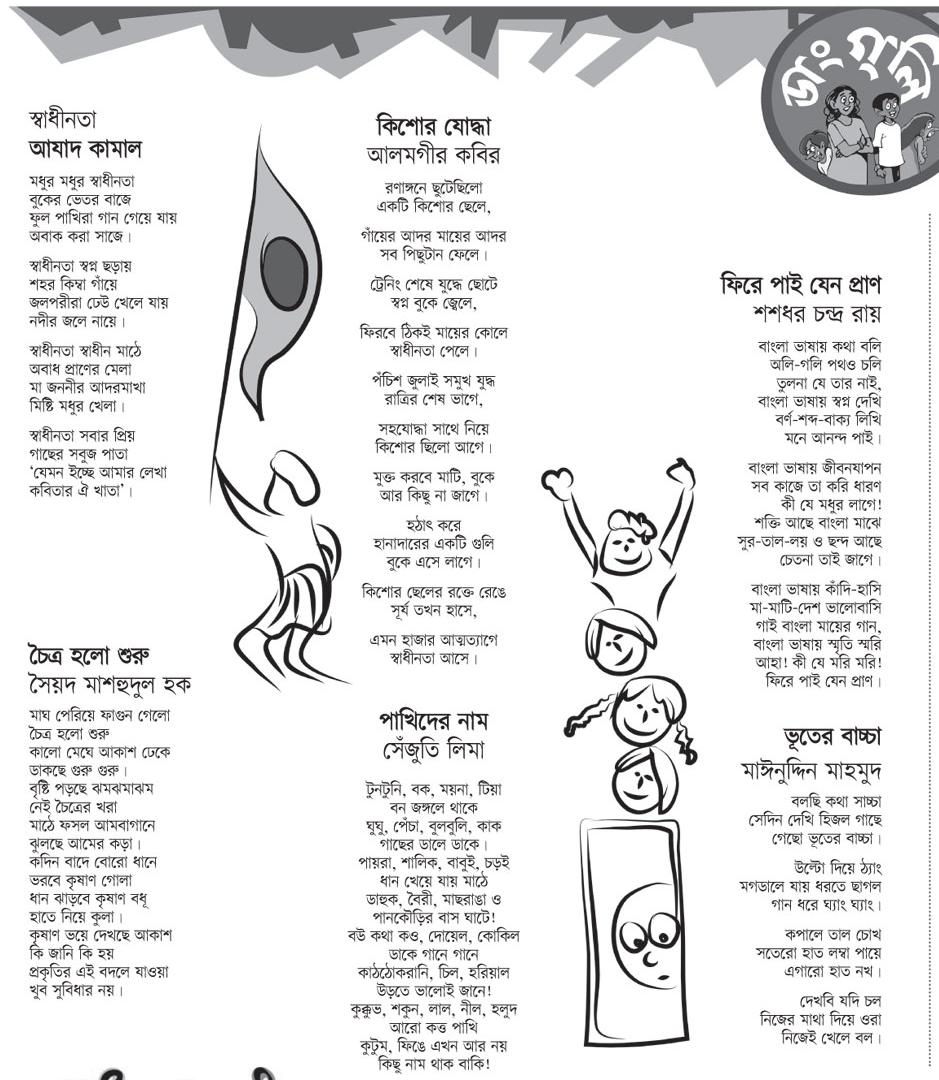 ডাংগুলি
স্বাধীনতা
আযাদ কামাল
মধুর মধুর স্বাধীনতা
বুকের ভেতর বাজে
ফুল পাখিরা গান গেয়ে যায়
অবাক করা সাজে।
স্বাধীনতা স্বপ্ন ছড়ায়
শহর কিম্বা গাঁয়ে
জলপরীরা ঢেউ খেলে যায়
নদীর জলে নায়ে।
স্বাধীনতা স্বাধীন মাঠে
অবাধ প্রাণের মেলা
মা জননীর আদরমাখা
মিষ্টি মধুর খেলা।
স্বাধীনতা সবার প্রিয়
গাছের সবুজ পাতা
‘যেমন ইচ্ছে আমার লেখা
কবিতার ঐ খাতা’।
চৈত্র হলো শুরু
সৈয়দ মাশহুদুল হক
মাঘ পেরিয়ে ফাগুন গেলো
চৈত্র হলো শুরু
কালো মেঘে আকাশ ঢেকে
ডাকছে গুরু গুরু।
বৃষ্টি পড়ছে ঝমঝমাঝম
নেই চৈত্রের খরা
মাঠে ফসল আমবাগানে
ঝুলছে আমের কড়া।
কদিন বাদে বোরো ধানে
ভরবে কৃষাণ গোলা
ধান ঝাড়বে কৃষাণ বধূ
হাতে নিয়ে কুলা।
কৃষাণ ভয়ে দেখছে আকাশ
কি জানি কি হয়
প্রকৃতির এই বদলে যাওয়া
খুব সুবিধার নয়।
কিশোর যোদ্ধা
আলমগীর কবির
রণাঙ্গনে ছুটেছিলো
একটি কিশোর ছেলে,
গাঁয়ের আদর মায়ের আদর
সব পিছুটান ফেলে।
ট্রেনিং শেষে যুদ্ধে ছোটে
স্বপ্ন বুকে জ্বেলে,
ফিরবে ঠিকই মায়ের কোলে
স্বাধীনতা পেলে।
পঁচিশ জুলাই সমুখ যুদ্ধ
রাত্রির শেষ ভাগে,
সহযোদ্ধা সাথে নিয়ে
কিশোর ছিলো আগে।
মুক্ত করবে মাটি, বুকে
আর কিছু না জাগে।
হঠাৎ করে
হানাদারের একটি গুলি
বুকে এসে লাগে।
কিশোর ছেলের রক্তে রেঙে
সূর্য তখন হাসে,
এমন হাজার আত্মত্যাগে
স্বাধীনতা আসে।
পাখিদের নাম
সেঁজুতি লিমা
টুনটুনি, বক, ময়না, টিয়া
বন জঙ্গলে থাকে
ঘুঘু, পেঁচা, বুলবুলি, কাক
গাছের ডালে ডাকে।
পায়রা, শালিক, বাবুই, চড়ই
ধান খেয়ে যায় মাঠে
ডাহুক, বৈরী, মাছরাঙা ও
পানকৌড়ির বাস ঘাটে!
বউ কথা কও, দোয়েল, কোকিল
ডাকে গানে গানে
কাঠঠোকরানি, চিল, হরিয়াল
উড়তে ভালোই জানে!
কুক্কুভ, শকুন, লাল, নীল, হলুদ
আরো কত্ত পাখি
কুটুম, ফিঙে এখন আর নয়
কিছু নাম থাক বাকি!
ফিরে পাই যেন প্রাণ
শশধর চন্দ্র রায়
বাংলা ভাষায় কথা বলি
অলি-গলি পথও চলি
তুলনা যে তার নাই,
বাংলা ভাষায় স্বপ্ন দেখি
বর্ণ-শব্দ-বাক্য লিখি
মনে আনন্দ পাই।
বাংলা ভাষায় জীবনযাপন
সব কাজে তা করি ধারণ
কী যে মধুর লাগে!
শক্তি আছে বাংলা মাঝে
সুর-তাল-লয় ও ছন্দ আছে
চেতনা তাই জাগে।
বাংলা ভাষায় কাঁদি-হাসি
মা-মাটি-দেশ ভালোবাসি
গাই বাংলা মায়ের গান,
বাংলা ভাষায় স্মৃতি স্মরি
আহা! কী যে মরি মরি!
ফিরে পাই যেন প্রাণ।
ভূতের বাচ্চা
মাঈনুদ্দিন মাহমুদ
বলছি কথা সাচ্চা
সেদিন দেখি হিজল গাছে
গেছো ভূতের বাচ্চা।
উল্টো দিয়ে ঠ্যাং
মগডালে যায় ধরতে ছাগল
গান ধরে ঘ্যাং ঘ্যাং।
কপালে তাল চোখ
সতেরো হাত লম্বা পায়ে
এগারো হাত নখ।
দেখবি যদি চল
নিজের মাথা দিয়ে ওরা
নিজেই খেলে বল।